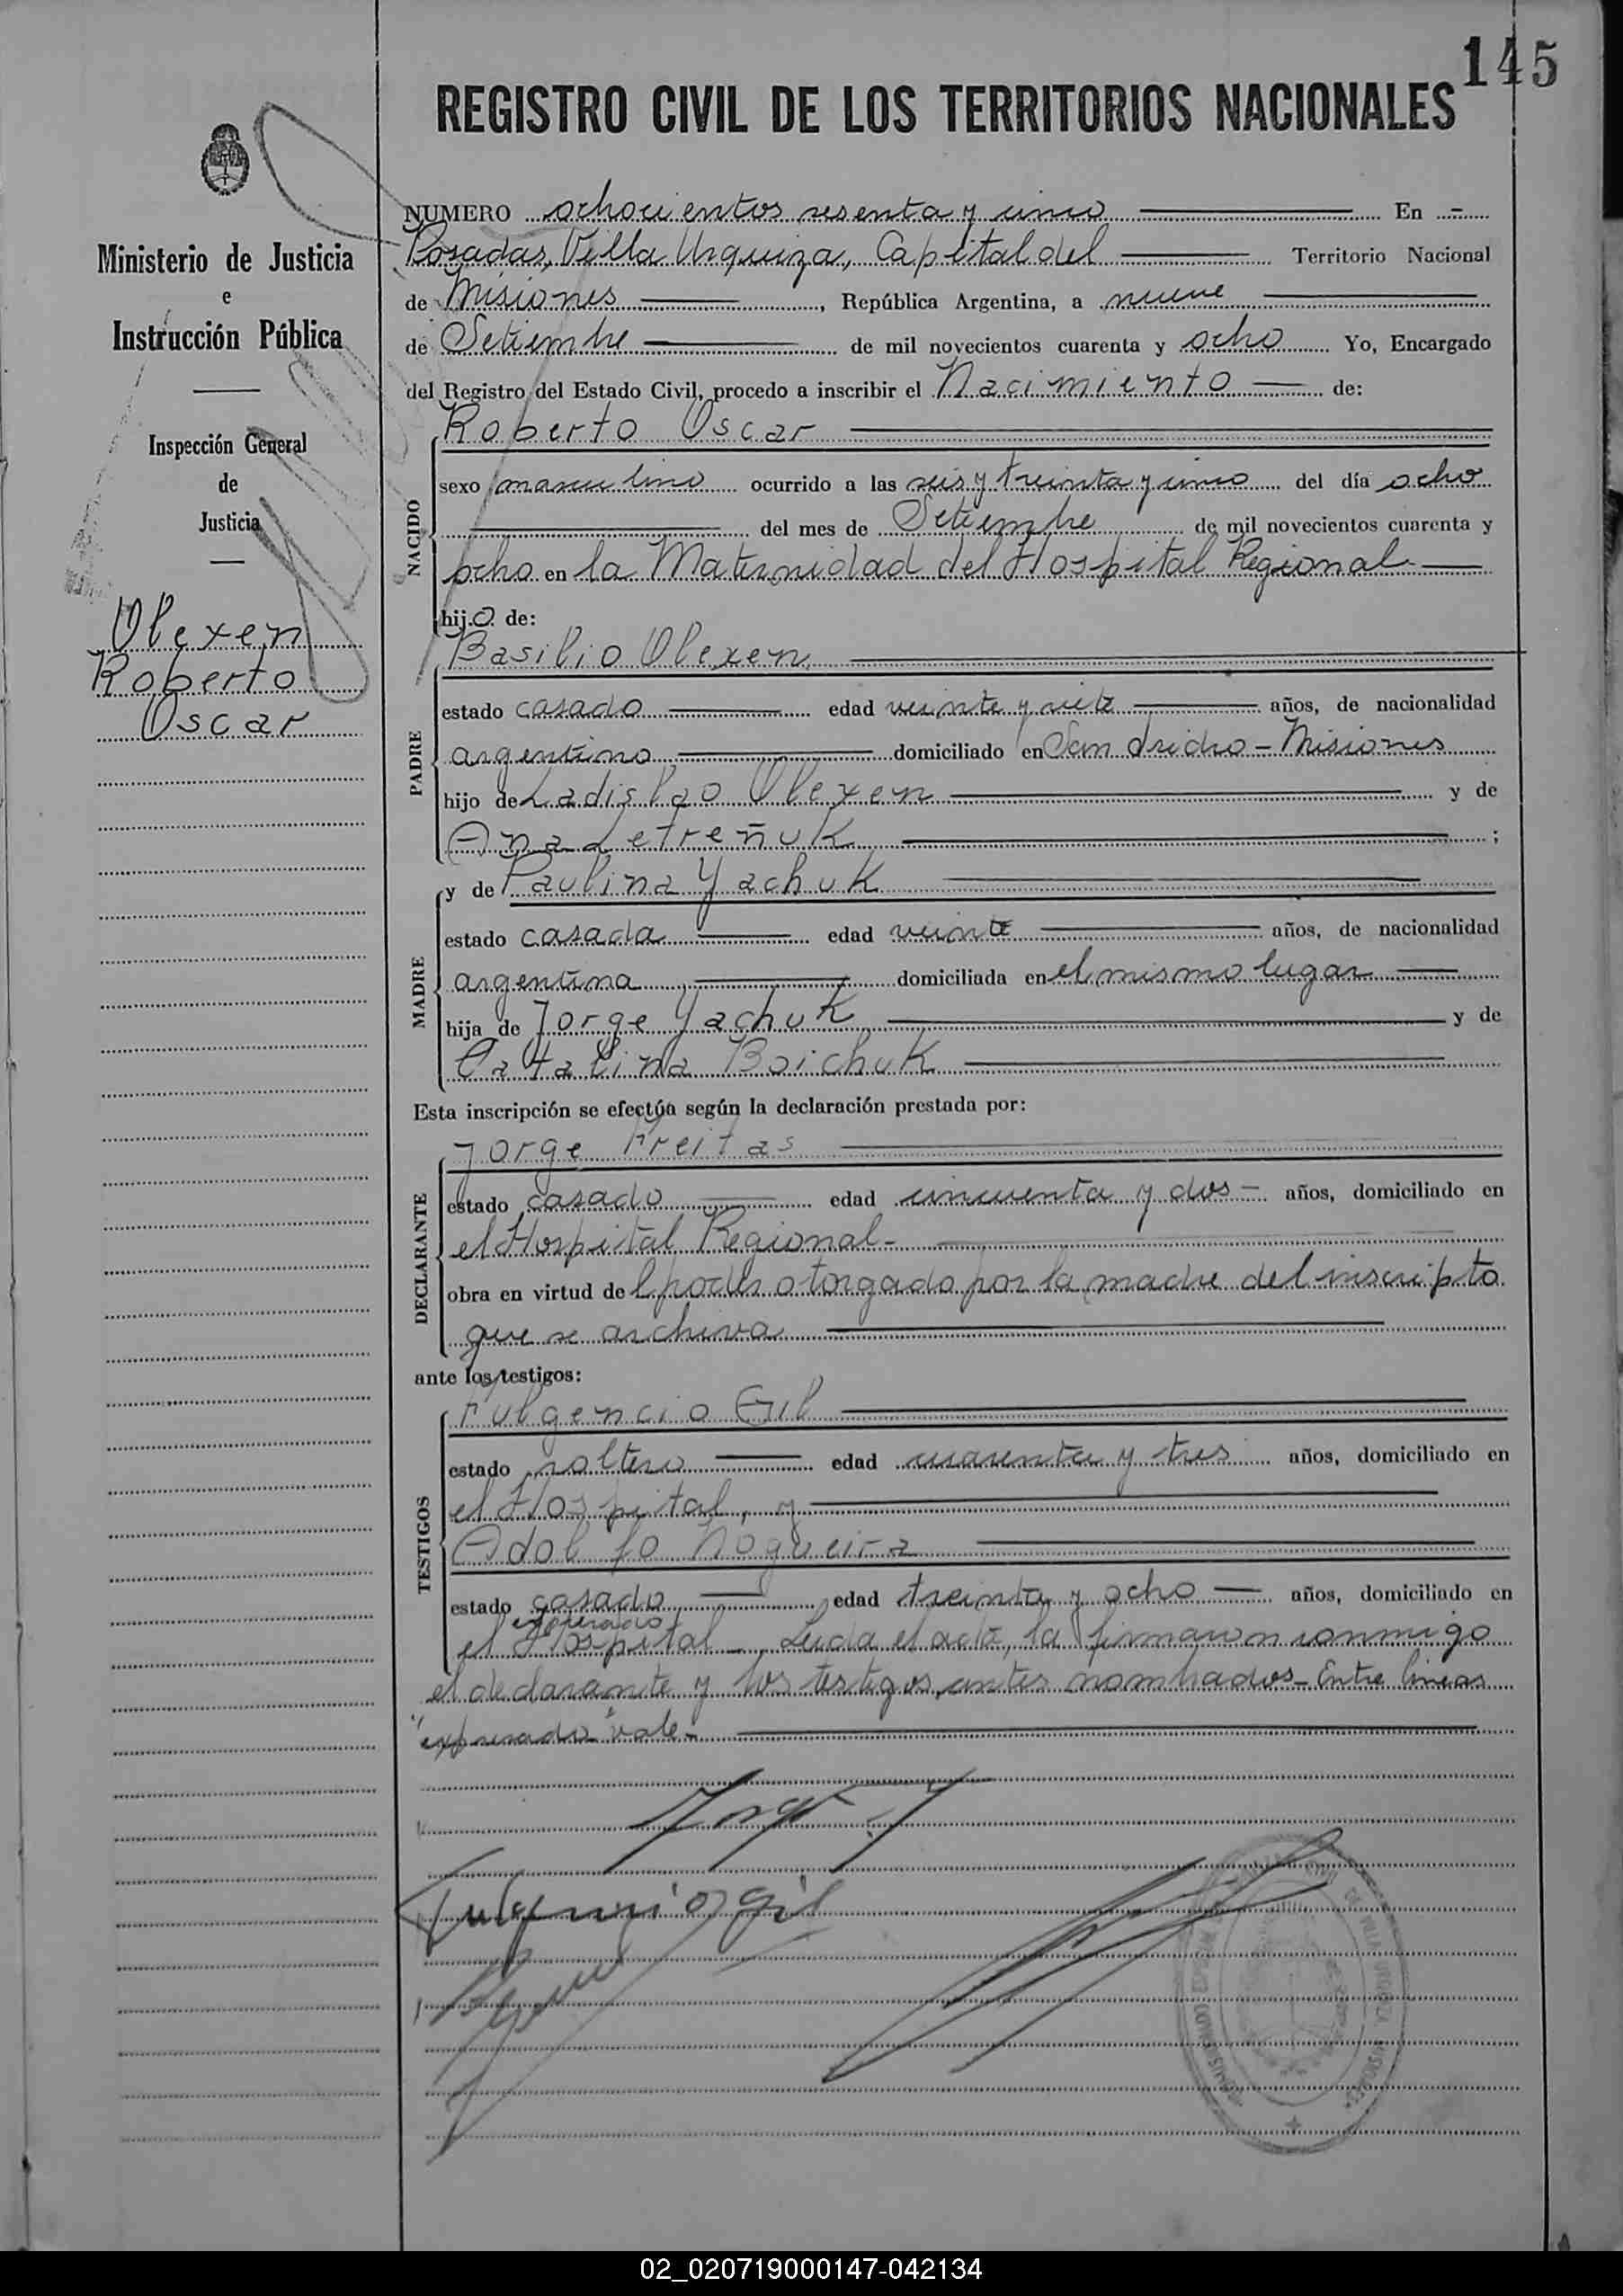 145
REGISTRO CIVIL DE LOS TERRITORIOS NACIONALES
Ministerio de Justicia
e
Instrucción Pública
Inspección General
de
Justicia
Olexen
Roberto
Oscar
NUMERO ochocientos sesenta y uno En -
Posadas, Villa Urquiza, Capital del Territorio Nacional
de Misiones, República Argentina, a nueve
de Setiembre de mil novecientos cuarenta y ocho Yo, Encargado
del Registro del Estado Civil, procedo a inscribir el Nacimiento de:
Roberto Oscar
NACIDO
sexo masculino ocurrido a las seis y treinta y uno del día ocho
del mes de Setiembre de mil novecientos cuarenta y
ocho en la Maternidad del Hospital Regional
hijo de:
Basilio Olexen
PADRE
estado casado edad veinte y siete años, de nacionalidad
argentino domiciliado en San Isidro - Misiones
hijo de Ladislao Olexen y de
Ana Letreñuk ;
MADRE
y de Paulina Yachuk
estado casada edad veinte años, de nacionalidad
argentina domiciliada en el mismo lugar
hija de Jorge Yachuk y de
Catalina Boichuk
Esta inscripción se efectúa según la declaración prestada por:
Jorge Freitas
DECLARANTE
estado casado edad cincuenta y dos - años, domiciliado en
el Hospital Regional -
obra en virtud del poder otorgado por la madre del inscripto
que se archiva
ante los testigos:
Fulgencio Gil
TESTIGOS
estado soltero edad cuarenta y tres años, domiciliado en
el Hospital, y
Adolfo Nogueira
estado casado edad treinta y ocho años, domiciliado en
expresado
el Hospital - Leida el acta, la firmaron conmigo
el declarante y los testigos antes nombrados - Entre lineas
"expresado" vale -
Fulgencio Gil
02_020719000147-042134